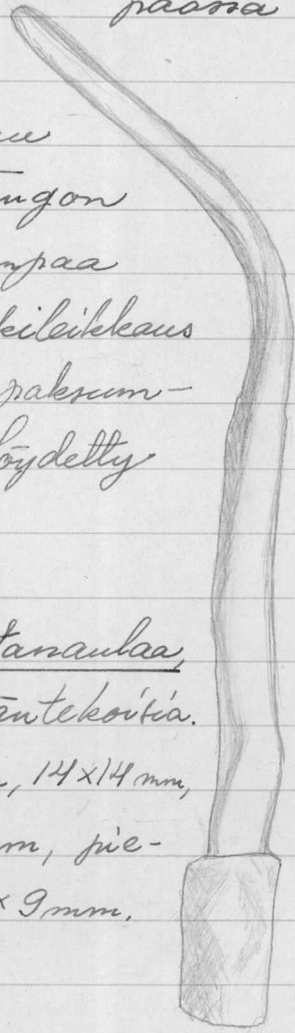 päässä
ungon
mpaa
kileikkaus
paksum-
löydetty
tanaulaa,
äntekoisia.
, 14x14 mm,
m, pie-
x 9 mm.